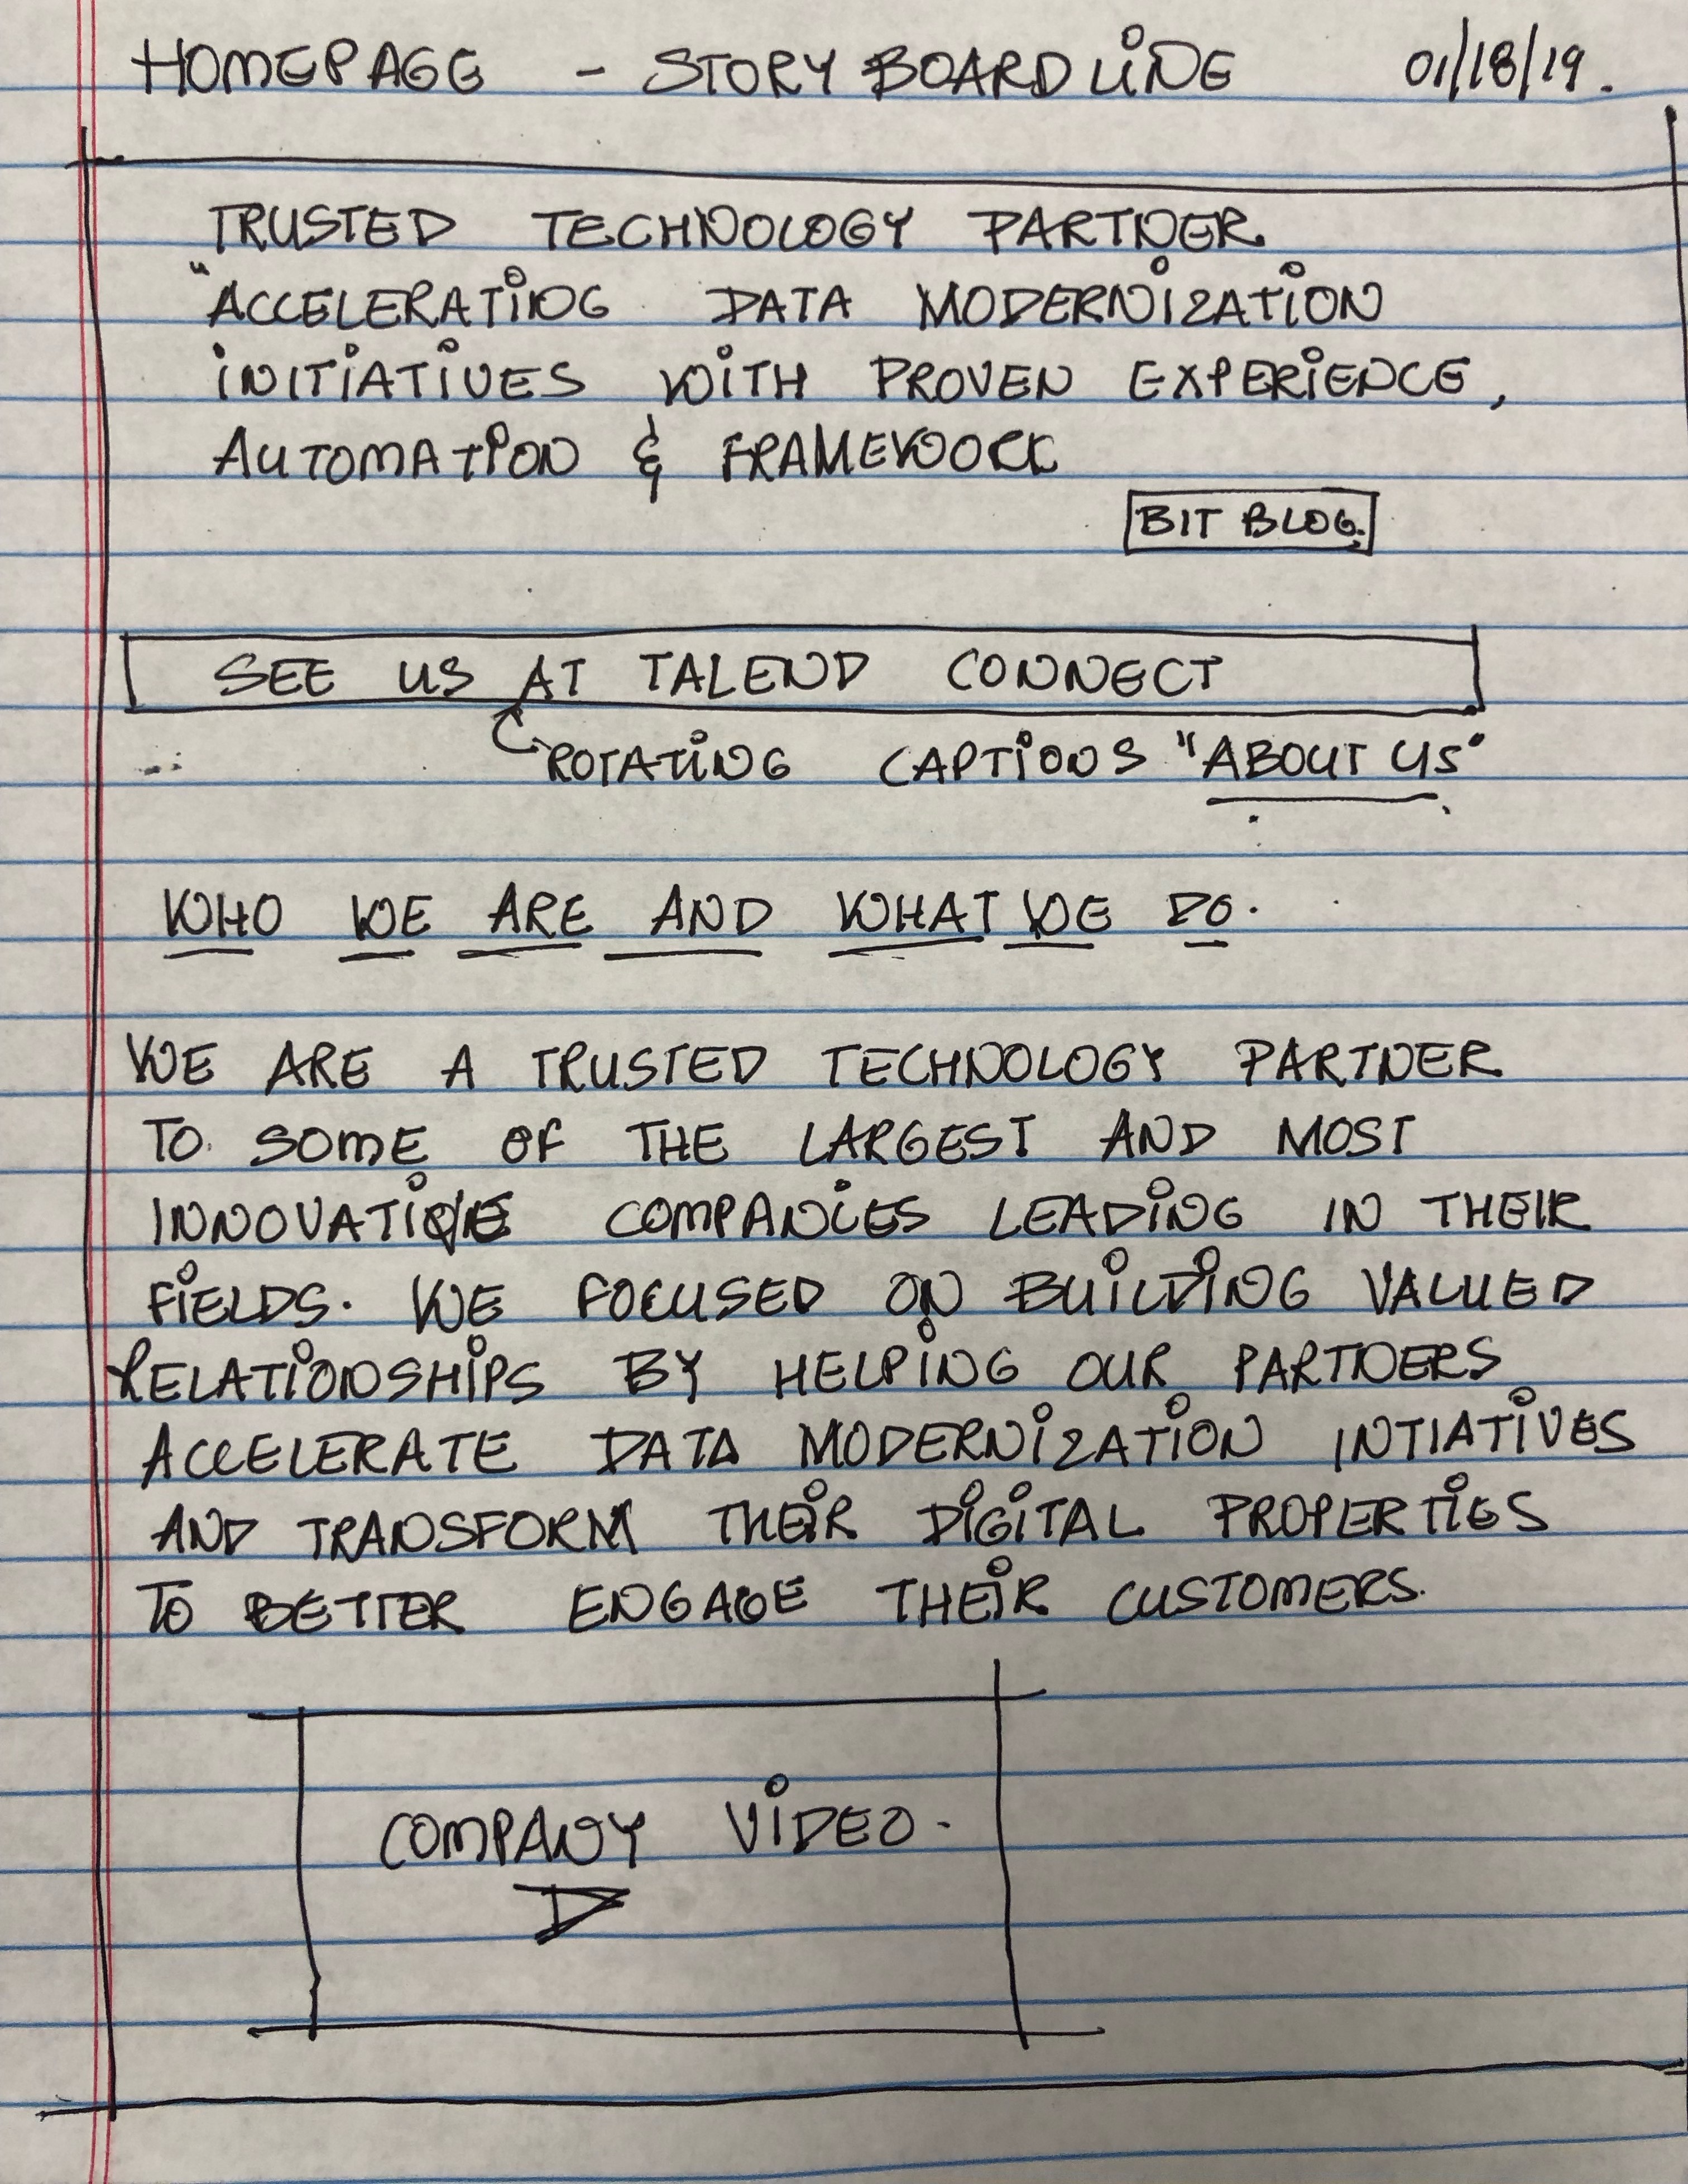 HOMEPAGE - STORY BOARD LINE 01/18/19.
TRUSTED TECHNOLOGY PARTNER.
"ACCELERATING DATA MODERNIZATION
INITIATIVES WITH PROVEN EXPERIENCE,
AUTOMATION & FRAMEWORK
BIT BLOG.
SEE US AT TALEND CONNECT
ROTATING CAPTIONS "ABOUT US"
WHO WE ARE AND WHAT WE DO.
WE ARE A TRUSTED TECHNOLOGY PARTNER
TO SOME OF THE LARGEST AND MOST
INNOVATIVE COMPANIES LEADING IN THEIR
FIELDS. WE FOCUSED ON BUILDING VALUED
RELATIONSHIPS BY HELPING OUR PARTNERS
ACCELERATE DATA MODERNIZATION INTIATIVES
AND TRANSFORM THEIR DIGITAL PROPERTIES
TO BETTER ENGAGE THEIR CUSTOMERS.
COMPANY VIDEO.